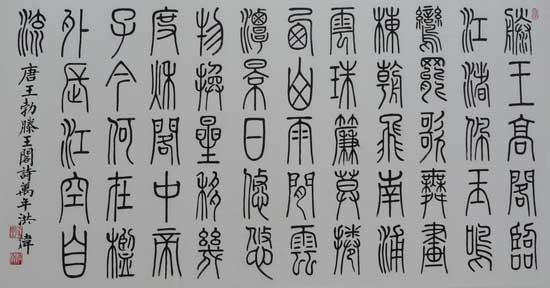 滕王高閣臨
江渚佩玉鳴
鸞罷歌舞畫
棟朝飛南浦
雲珠簾莫捲
西山雨閒雲
潭景日悠悠
物換星移幾
度秋閣中帝
子今何在檻
外長江空自
流
唐王勃滕王閣詩萬年洪偉